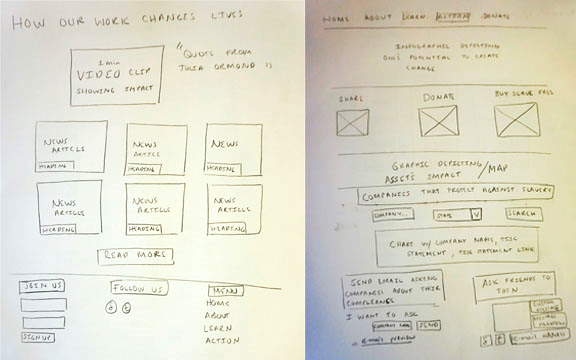 HOW OUR WORK CHANGES LIVES
1 min
VIDEO CLIP
SHOWING IMPACT
"QUOTE FROM
JULIA ORMOND"
NEWS
ARTICLE
HEADING
NEWS
ARTICLE
HEADING
NEWS
HEADING
NEWS
ARTICLE
HEADING
NEWS
ARTICLE
HEADING
NEWS
ARTICLE
HEADING
READ MORE
JOIN US
SIGN UP
FOLLOW US
MENU
HOME
ABOUT
LEARN
ACTION
HOME ABOUT LEARN ACTION DONATE
INFOGRAPHIC DEPICTING
ONE'S POTENTIAL TO CREATE
CHANGE
SHARE
DONATE
BUY SLAVE FREE
GRAPHIC DEPICTING
ASSET'S IMPACT /MAP
COMPANIES THAT PROTECT AGAINST SLAVERY
COMPANY... STATE V SEARCH
CHART W/ COMPANY NAME, TISC
STATEMENT / TISC STATEMENT LINK
SEND EMAIL ASKING
COMPANIES ABOUT THEIR
I WANT TO ASK
COMPANY NAME SEND
E-MAIL PREVIEW
ASK FRIENDS TO
JOIN
CUSTOM
MESSAGE
MESSAGE
E-MAIL ADDRESS